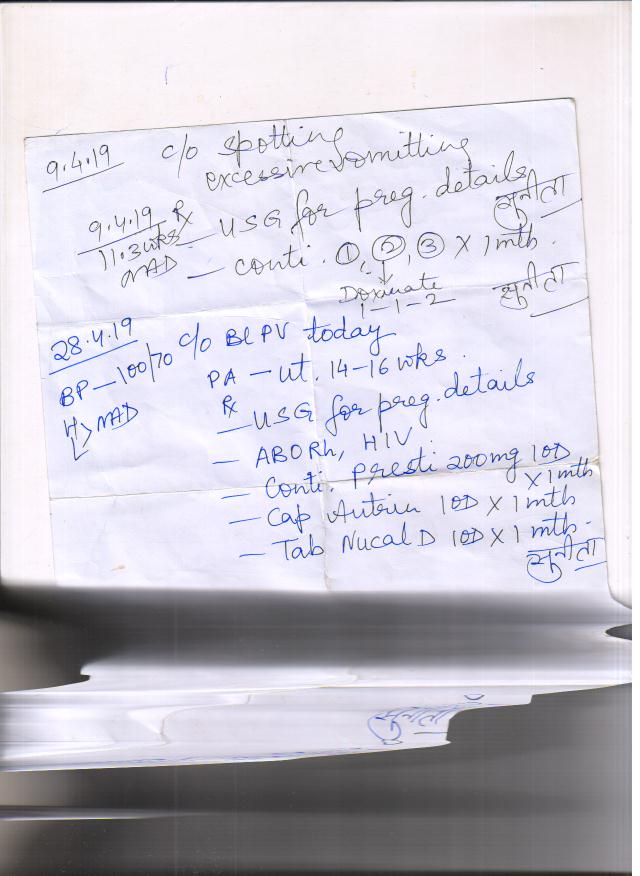 9.4.19 c/o spotting
excessive vomitting
9.4.19 Rx
11.3 wks — USG for preg. details सुनीता
NAD — conti. ①, ②, ③ X 1 mth.
Doxinate सुनीता
1-1-2
28.4.19 c/o Bl PV today
BP—100/70 PA — ut. 14-16 wks.
H NAD Rx
L — USG for preg. details
— ABORh, HIV
— Conti. Presti 200mg 1OD
X 1 mth
— Cap Autrin 1OD X 1 mth
— Tab Nucal D 1OD X 1 mth.
सुनीता
सुनीता